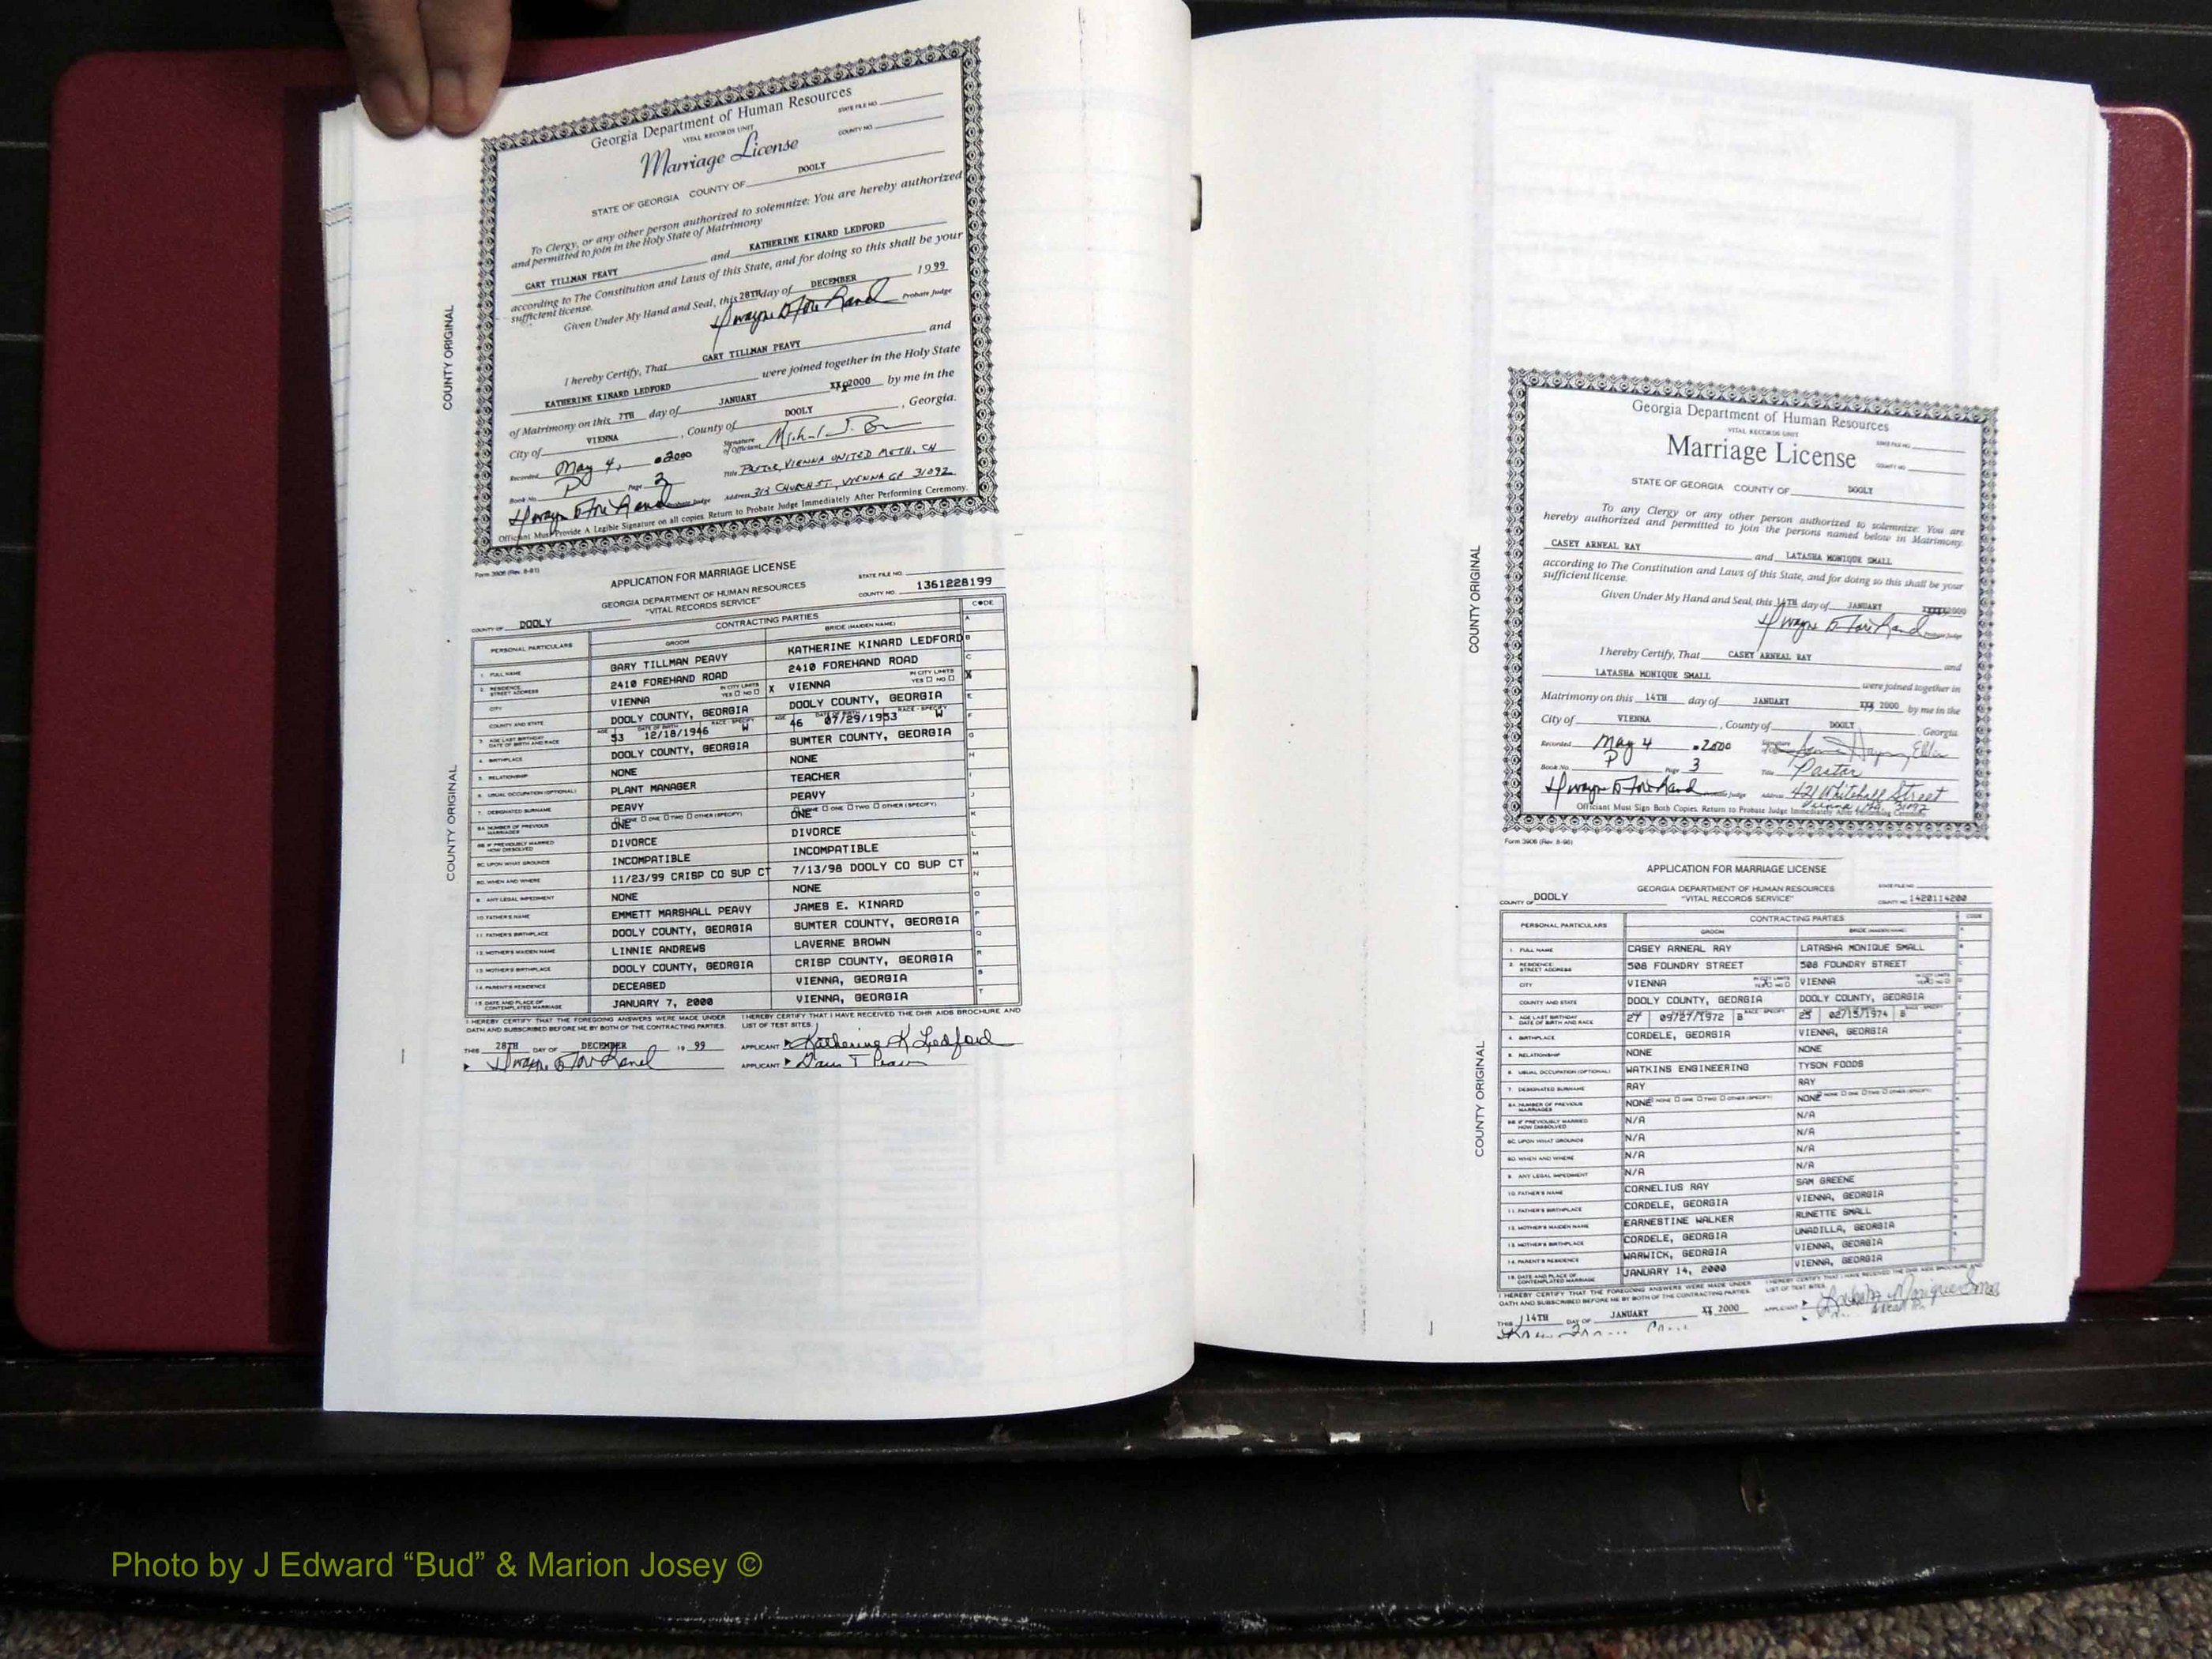 Georgia Department of Human Resources
VITAL RECORDS UNIT
STATE FILE NO.
Marriage License
COUNTY NO.
STATE OF GEORGIA COUNTY OF DOOLY
To Clergy, or any other person authorized to solemnize: You are hereby authorized
and permitted to join in the Holy State of Matrimony
GARY TILLMAN PEAVY and KATHERINE KINARD LEDFORD
according to The Constitution and Laws of this State, and for doing so this shall be your
sufficient license.
Given Under My Hand and Seal, this 28TH day of DECEMBER 1999
Probate Judge
I hereby Certify, That GARY TILLMAN PEAVY and
KATHERINE KINARD LEDFORD were joined together in the Holy State
of Matrimony on this 7TH day of JANUARY 2000 by me in the
City of VIENNA, County of DOOLY, Georgia.
Recorded May 4, 2000 Signature of Officiant
Book No. P Page 3 Title PASTOR, VIENNA UNITED METH. CH
Probate Judge Address 313 CHURCH ST, VIENNA GA 31092
Officiant Must Provide A Legible Signature on all copies. Return to Probate Judge Immediately After Performing Ceremony.
COUNTY ORIGINAL
Form 3906 (Rev. 8-91)
APPLICATION FOR MARRIAGE LICENSE
GEORGIA DEPARTMENT OF HUMAN RESOURCES
"VITAL RECORDS SERVICE"
STATE FILE NO.
COUNTY NO. 1361228199
COUNTY OF DOOLY
CONTRACTING PARTIES CODE
PERSONAL PARTICULARS GROOM BRIDE (MAIDEN NAME)
1. FULL NAME GARY TILLMAN PEAVY KATHERINE KINARD LEDFORD
2. RESIDENCE STREET ADDRESS 2410 FOREHAND ROAD 2410 FOREHAND ROAD
CITY VIENNA IN CITY LIMITS YES NO X VIENNA IN CITY LIMITS YES NO X
COUNTY AND STATE DOOLY COUNTY, GEORGIA DOOLY COUNTY, GEORGIA
3. AGE LAST BIRTHDAY DATE OF BIRTH AND RACE 53 12/18/1946 W 46 07/29/1953 W
4. BIRTHPLACE DOOLY COUNTY, GEORGIA SUMTER COUNTY, GEORGIA
5. RELATIONSHIP NONE NONE
6. USUAL OCCUPATION (OPTIONAL) PLANT MANAGER TEACHER
7. DESIGNATED SURNAME PEAVY PEAVY
8A. NUMBER OF PREVIOUS MARRIAGES ONE ONE
8B. IF PREVIOUSLY MARRIED HOW DISSOLVED DIVORCE DIVORCE
8C. UPON WHAT GROUNDS INCOMPATIBLE INCOMPATIBLE
8D. WHEN AND WHERE 11/23/99 CRISP CO SUP CT 7/13/98 DOOLY CO SUP CT
9. ANY LEGAL IMPEDIMENT NONE NONE
10. FATHER'S NAME EMMETT MARSHALL PEAVY JAMES E. KINARD
11. FATHER'S BIRTHPLACE DOOLY COUNTY, GEORGIA SUMTER COUNTY, GEORGIA
12. MOTHER'S MAIDEN NAME LINNIE ANDREWS LAVERNE BROWN
13. MOTHER'S BIRTHPLACE DOOLY COUNTY, GEORGIA CRISP COUNTY, GEORGIA
14. PARENT'S RESIDENCE DECEASED VIENNA, GEORGIA
15. DATE AND PLACE OF CONTEMPLATED MARRIAGE JANUARY 7, 2000 VIENNA, GEORGIA
I HEREBY CERTIFY THAT THE FOREGOING ANSWERS WERE MADE UNDER OATH AND SUBSCRIBED BEFORE ME BY BOTH OF THE CONTRACTING PARTIES.
I HEREBY CERTIFY THAT I HAVE RECEIVED THE DHR AIDS BROCHURE AND LIST OF TEST SITES.
THIS 28TH DAY OF DECEMBER 19 99
APPLICANT Katherine K Ledford
APPLICANT
COUNTY ORIGINAL
Georgia Department of Human Resources
VITAL RECORDS UNIT
STATE FILE NO.
Marriage License
COUNTY NO.
STATE OF GEORGIA COUNTY OF DOOLY
To any Clergy or any other person authorized to solemnize: You are
hereby authorized and permitted to join the persons named below in Matrimony.
CASEY ARNEAL RAY and LATASHA MONIQUE SMALL
according to The Constitution and Laws of this State, and for doing so this shall be your
sufficient license.
Given Under My Hand and Seal, this 14TH day of JANUARY 2000
Probate Judge
I hereby Certify, That CASEY ARNEAL RAY and
LATASHA MONIQUE SMALL were joined together in
Matrimony on this 14TH day of JANUARY 2000 by me in the
City of VIENNA, County of DOOLY Georgia
Recorded May 4 2000
Book No. P Page 3 Title Pastor
Probate Judge Address 421 Whitehall Street
Vienna, Ga. 31092
Officiant Must Sign Both Copies. Return to Probate Judge Immediately After Performing Ceremony.
COUNTY ORIGINAL
Form 3906 (Rev. 8-96)
APPLICATION FOR MARRIAGE LICENSE
GEORGIA DEPARTMENT OF HUMAN RESOURCES
"VITAL RECORDS SERVICE"
STATE FILE NO.
COUNTY NO. 1420114200
COUNTY OF DOOLY
CONTRACTING PARTIES CODE
PERSONAL PARTICULARS GROOM BRIDE (MAIDEN NAME)
1. FULL NAME CASEY ARNEAL RAY LATASHA MONIQUE SMALL
2. RESIDENCE STREET ADDRESS 508 FOUNDRY STREET 508 FOUNDRY STREET
CITY VIENNA VIENNA
COUNTY AND STATE DOOLY COUNTY, GEORGIA DOOLY COUNTY, GEORGIA
3. AGE LAST BIRTHDAY DATE OF BIRTH AND RACE 27 09/27/1972 B 25 02/15/1974 B
4. BIRTHPLACE CORDELE, GEORGIA VIENNA, GEORGIA
5. RELATIONSHIP NONE NONE
6. USUAL OCCUPATION (OPTIONAL) WATKINS ENGINEERING TYSON FOODS
7. DESIGNATED SURNAME RAY RAY
8A. NUMBER OF PREVIOUS MARRIAGES NONE NONE
8B. IF PREVIOUSLY MARRIED HOW DISSOLVED N/A N/A
8C. UPON WHAT GROUNDS N/A N/A
8D. WHEN AND WHERE N/A N/A
9. ANY LEGAL IMPEDIMENT N/A N/A
10. FATHER'S NAME CORNELIUS RAY SAM GREENE
11. FATHER'S BIRTHPLACE CORDELE, GEORGIA VIENNA, GEORGIA
12. MOTHER'S MAIDEN NAME EARNESTINE WALKER RUNETTE SMALL
13. MOTHER'S BIRTHPLACE CORDELE, GEORGIA UNADILLA, GEORGIA
14. PARENT'S RESIDENCE WARWICK, GEORGIA VIENNA, GEORGIA
15. DATE AND PLACE OF CONTEMPLATED MARRIAGE JANUARY 14, 2000 VIENNA, GEORGIA
I HEREBY CERTIFY THAT THE FOREGOING ANSWERS WERE MADE UNDER OATH AND SUBSCRIBED BEFORE ME BY BOTH OF THE CONTRACTING PARTIES.
I HEREBY CERTIFY THAT I HAVE RECEIVED THE DHR AIDS BROCHURE AND LIST OF TEST SITES.
THIS 14TH DAY OF JANUARY 2000
APPLICANT
COUNTY ORIGINAL
Photo by J Edward “Bud” & Marion Josey ©